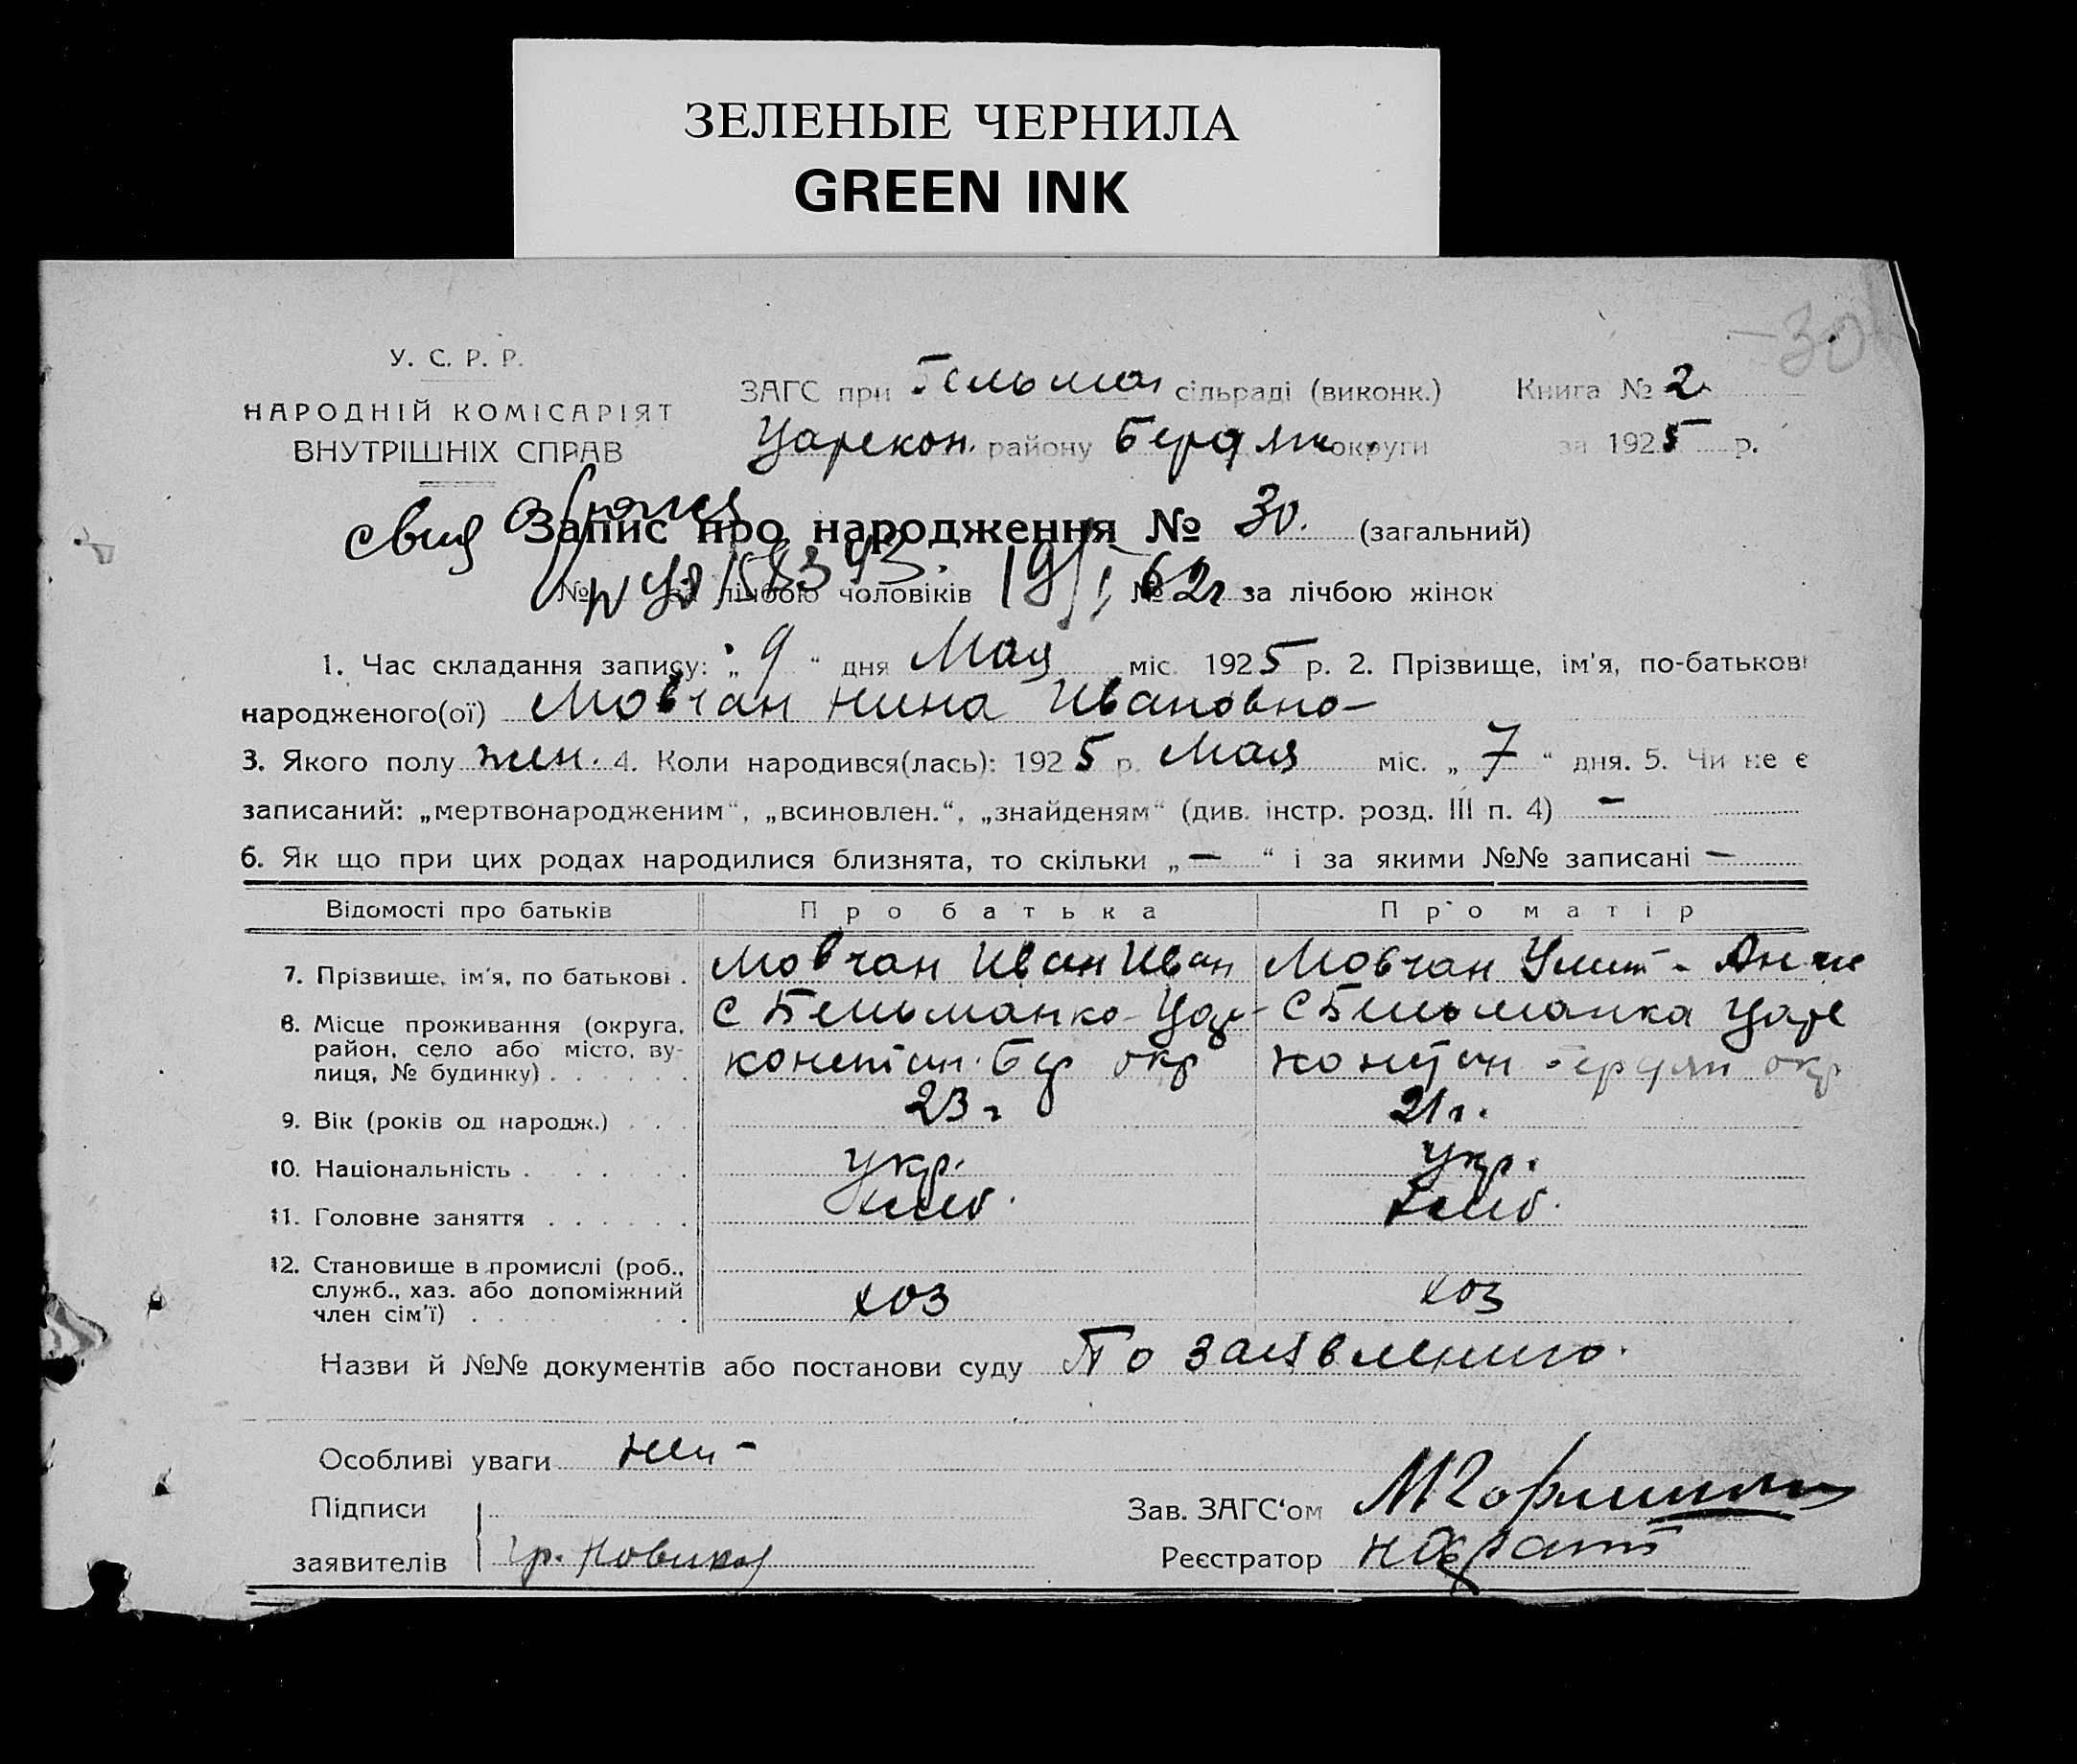 ЗЕЛЕНЫЕ ЧЕРНИЛА
GREEN INK
30
У. С. Р. Р.
НАРОДНІЙ КОМІСАРІЯТ
ВНУТРІШНІХ СПРАВ
ЗАГС при Бельман сільраді (виконк.) Книга № 2
Царекон. району Бердян округи за 1925 р.
свид
Запис про народження № 30. (загальний)
№ за лічбою чоловіків № за лічбою жінок
19/I 62г
1. Час складання запису: „9“ дня Мая міс. 1925 р. 2. Прізвище, ім'я, по-батькові
народженого(ої) Мовчан Нина Ивановна
3. Якого полу жен. 4. Коли народився(лась): 1925 р. Мая міс. „7“ дня. 5. Чи не є
записаний: „мертвонародженим“, „всиновлен.“, „знайденям“ (див. інстр. розд. III п. 4) —
6. Як що при цих родах народилися близнята, то скільки „—“ і за якими №№ записані —
Відомості про батьків Про батька Про матір
7. Прізвище, ім'я, по батькові . Мовчан Иван Иван Мовчан
8. Місце проживання (округа, район, село або місто, вулиця, № будинку) . . . . . . с Бельманка Царе- с Бельманка Царе
констан. Бер окр констан Бердян окр
9. Вік (років од народж.) . . . 23 г 21 г.
10. Національність . . . . . . укр. укр.
11. Головне заняття . . . . . . хлеб. хлеб.
12. Становище в промислі (роб., служб., хаз. або допоміжний член сім'ї) . . . . . . хоз хоз
Назви й №№ документів або постанови суду По заявлению.
Особливі уваги нет -
Підписи
заявителів гр. Новиков
Зав. ЗАГС'ом
Реєстратор